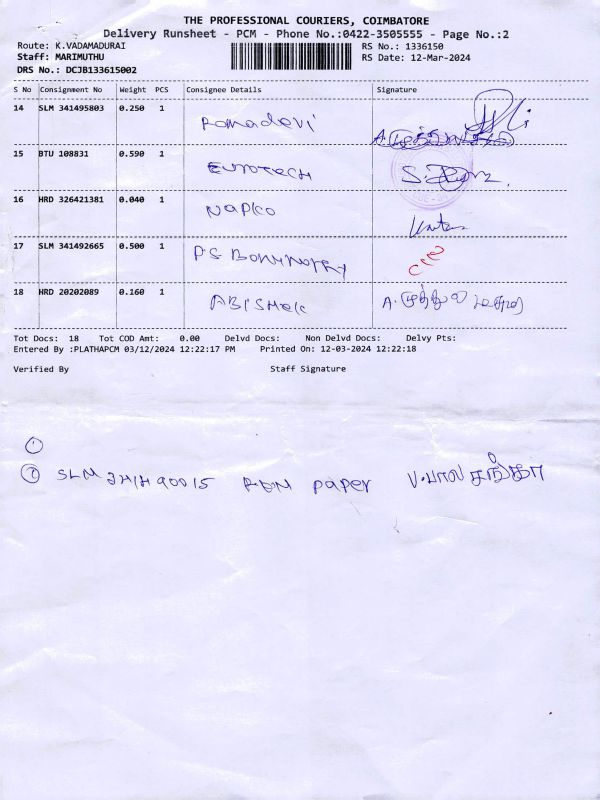 THE PROFESSIONAL COURIERS, COIMBATORE
Delivery Runsheet - PCM - Phone No.:0422-3505555 - Page No.:2
Route: K.VADAMADURAI RS No.: 1336150
Staff: MARIMUTHU RS Date: 12-Mar-2024
DRS No.: DCJB133615002
S No Consignment No Weight PCS Consignee Details Signature
14 SLM 341495803 0.250 1 Ramadevi
15 BTU 108831 0.590 1 EUROTECH
16 HRD 326421381 0.040 1 Napco
17 SLM 341492665 0.500 1 PS
18 HRD 20202089 0.160 1 ABISHEK
Tot Docs: 18 Tot COD Amt: 0.00 Delvd Docs: Non Delvd Docs: Delvy Pts:
Entered By :PLATHAPCM 03/12/2024 12:22:17 PM Printed On: 12-03-2024 12:22:18
Verified By Staff Signature
SLM paper V.பால